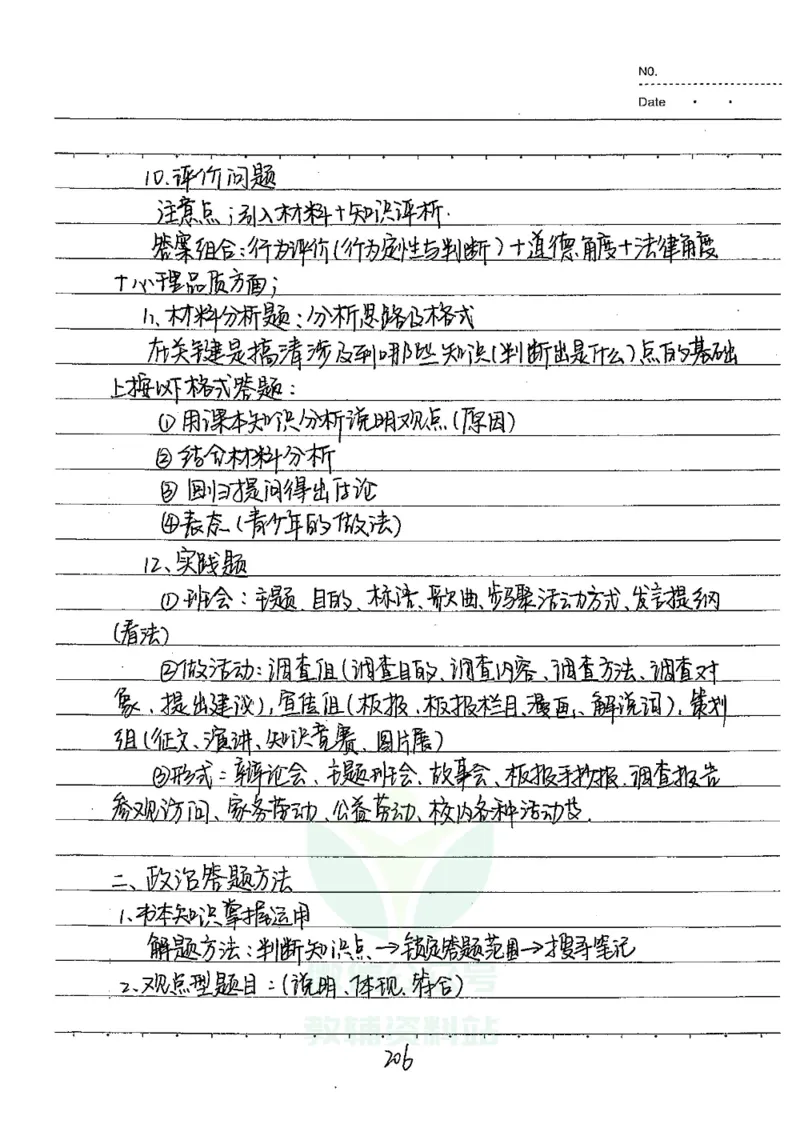 NO.
Date
10.评价问题
注意点:引入材料+知识评析.
答案组合:行为评价(行为定性与判断)+道德角度+法律角度
+心理品质方面;
11、材料分析题:分析思路及格式
在关键是搞清涉及到哪些知识(判断出是什么)点的基础
上按以下格式答题:
①用课本知识分析说明观点(原因)
②结合材料分析
③回归提问得出结论
④表态(青少年的做法)
12、实践题
①班会:主题、目的、标语、歌曲、步骤活动方式、发言提纲
(看法)
②做活动:调查组(调查目的、调查内容、调查方法、调查对
象、提出建议),宣传组(板报、板报栏目、漫画、解说词),策划
组(征文、演讲、知识竞赛、图片展)
③形式:辩论会、主题班会、故事会、板报手抄报、调查报告
参观访问、家务劳动、公益劳动、校内各种活动等.
二、政治答题方法
1、书本知识掌握运用
解题方法:判断知识点→锁定答题范围→搜寻笔记
2、观点型题目:(说明、体现、符合)
教辅资料站
206